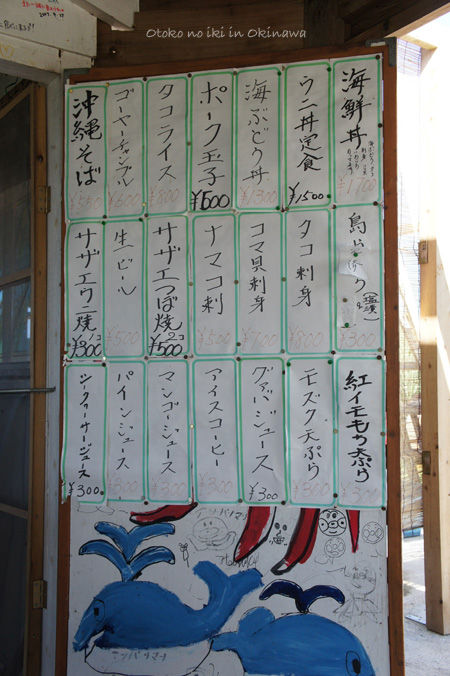 Otoko no iki in Okinawa
海鮮丼
¥1700
ウニ丼定食
¥1500
海ぶどう丼
¥1300
ポーク玉子
¥600
タコライス
¥800
ゴーヤーチャンプル
¥600
沖縄そば
¥550
島らっきょう
(塩漬)
¥300
タコ刺身
¥800
コマ貝刺身
¥700
ナマコ刺
¥500
サザエつぼ焼
2コ
¥500
生ビール
¥500
サザエウニ焼
1コ
¥300
紅イモもち天ぷら
¥300
モズク天ぷら
¥300
グァバジュース
¥300
アイスコーヒー
¥300
マンゴージュース
¥300
パインジュース
¥300
シークヮーサージュース
¥300